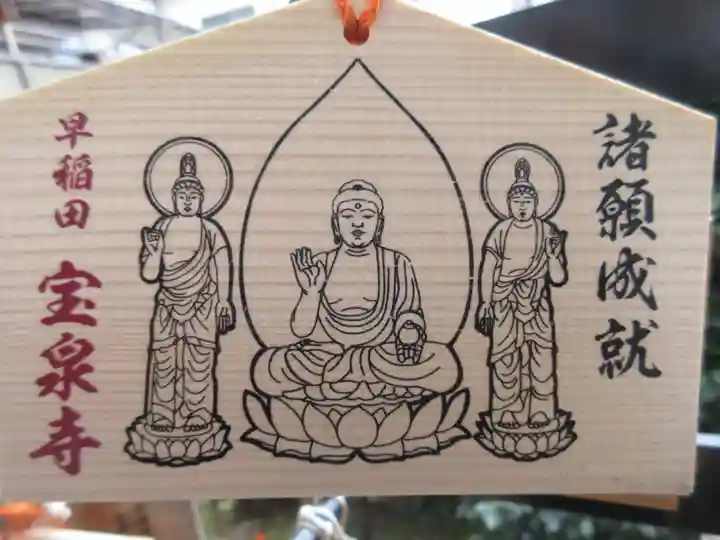 諸願成就
早稲田 宝泉寺